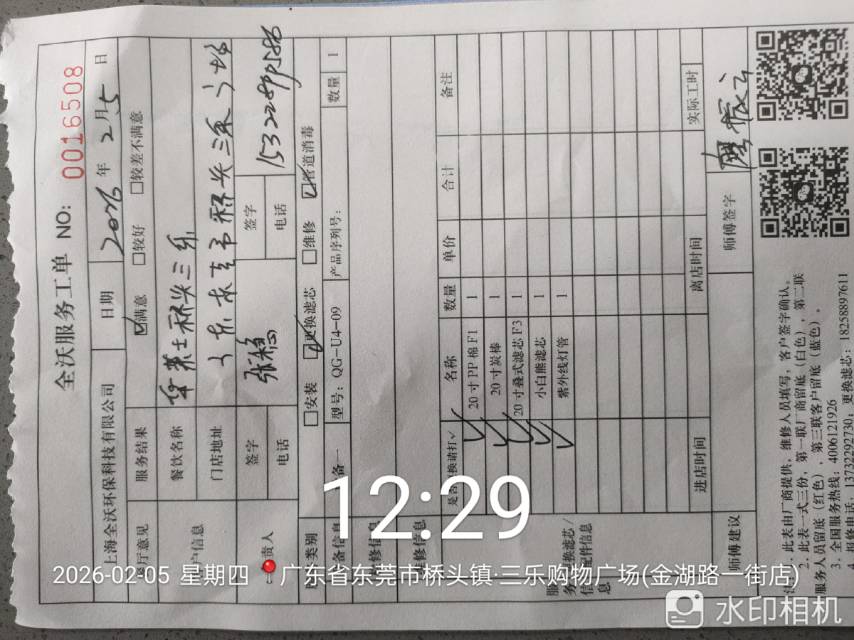 全沃服务工单 NO: 0016508
上海全沃环保科技有限公司 日期 2026 年 2 月 5 日
厅意见 服务结果 ☑满意 □较好 □较差不满意
餐饮名称 华莱士桥头三乐
门店地址 广东东莞市桥头三乐广场
签字 签字
电话 电话
□安装 ☑更换滤芯 □维修 ☑管道消毒
备一 型号: QG-U4-09 产品序列号: 数量 1
名称 数量 单价 合计 备注
✓ 20寸PP棉F1 1
✓ 20寸炭棒 1
✓ 20寸叠式滤芯F3 1
✓ 小白熊滤芯 1
✓ 紫外线灯管 1
进店时间 离店时间 实际工时
师傅建议 师傅签字
1、此表由厂商提供，维修人员填写，客户签字确认。
2、此表一式三份，第一联厂商留底（白色），第二联
服务人员留底（红色），第三联客户留底（蓝色）。
3、全国服务热线: 4006121926
4、报修电话: 13732292730; 更换滤芯: 18258897611
12:29
2026-02-05 星期四 广东省东莞市桥头镇·三乐购物广场(金湖路一街店)
水印相机